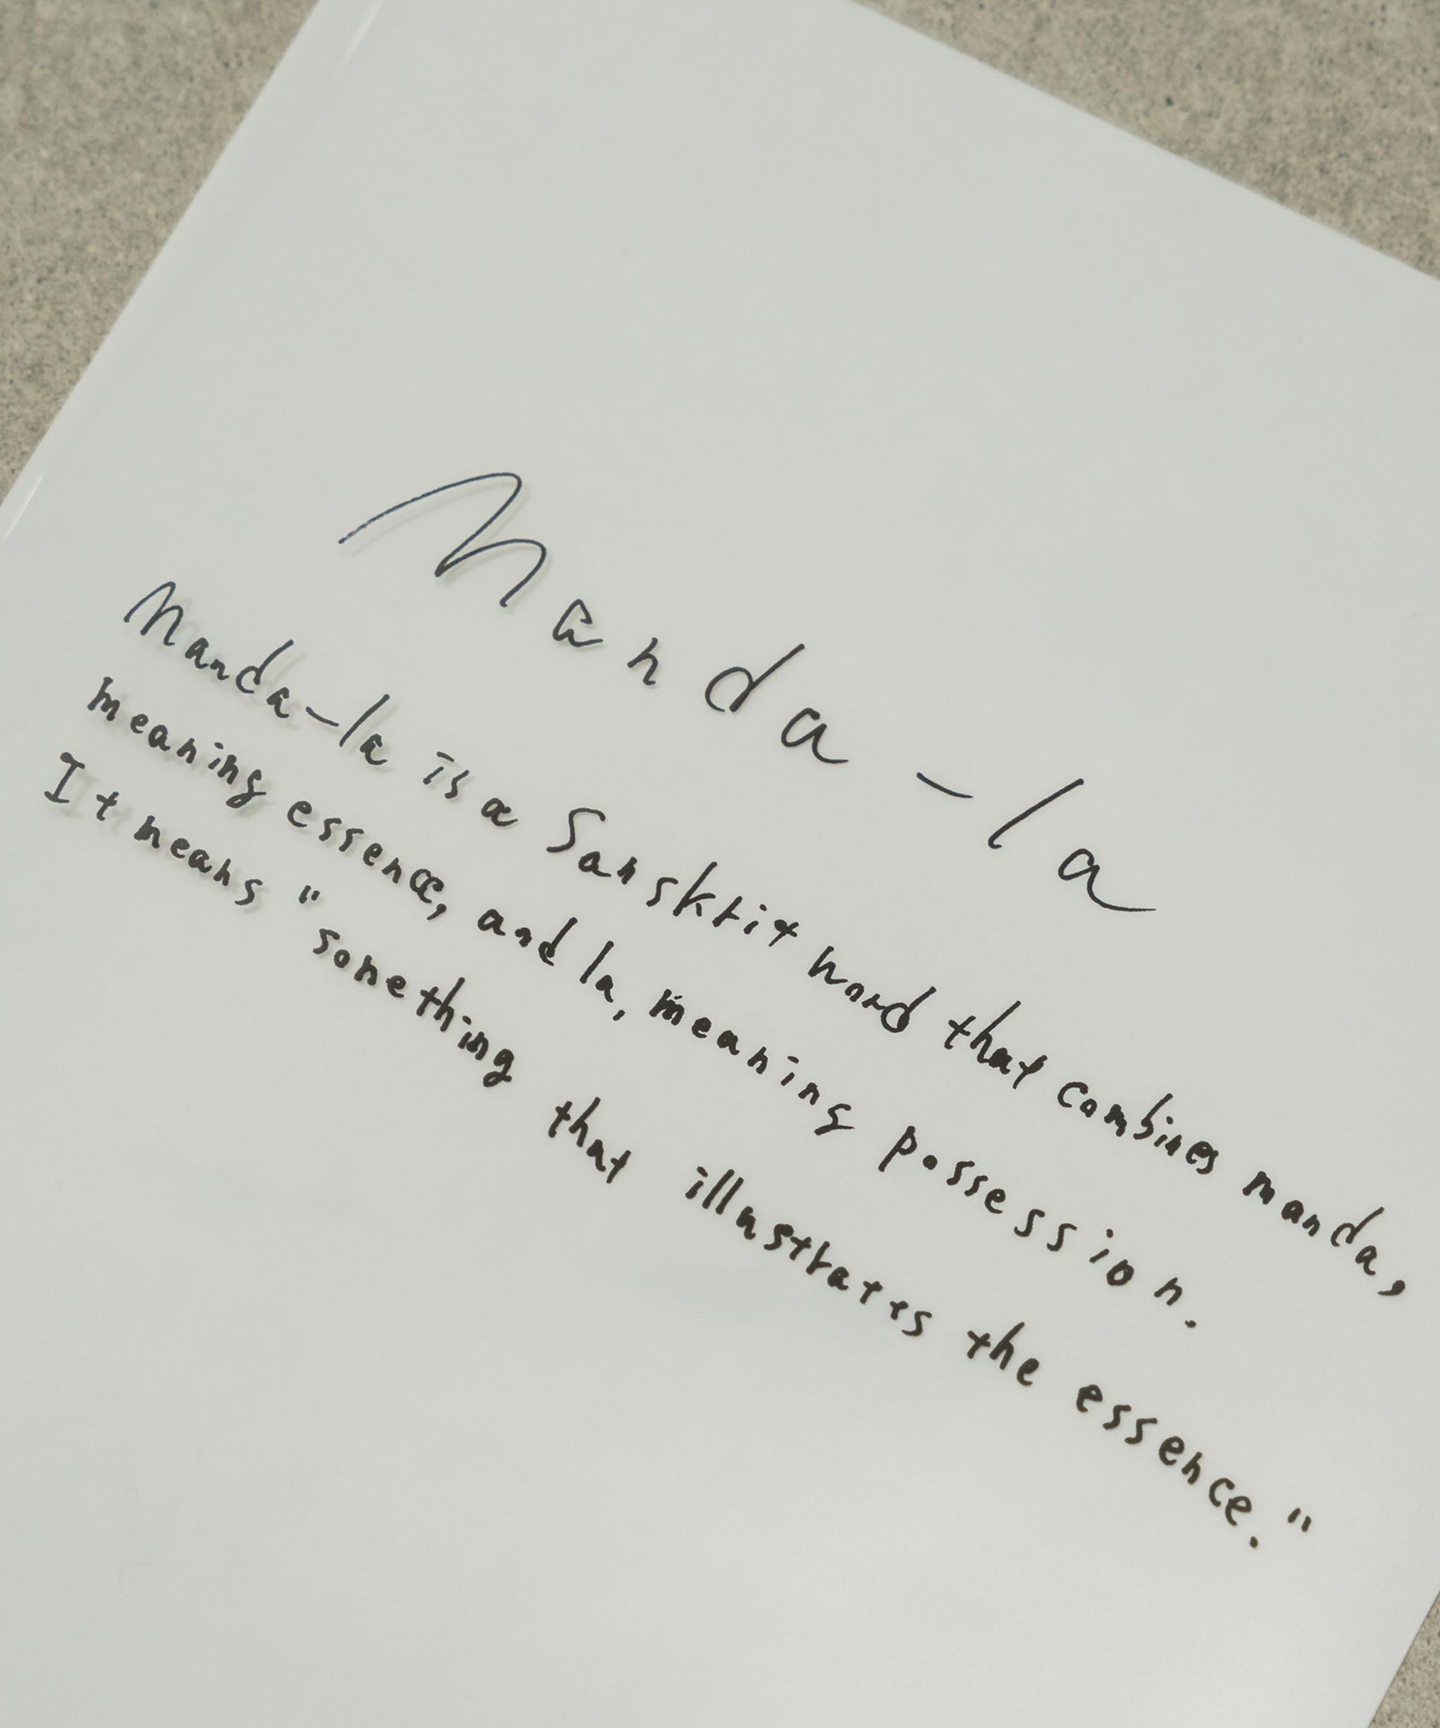 Manda-la
Manda-la is a Sanskrit word that combines manda,
meaning essence, and la, meaning possession.
It means "something that illustrates the essence."